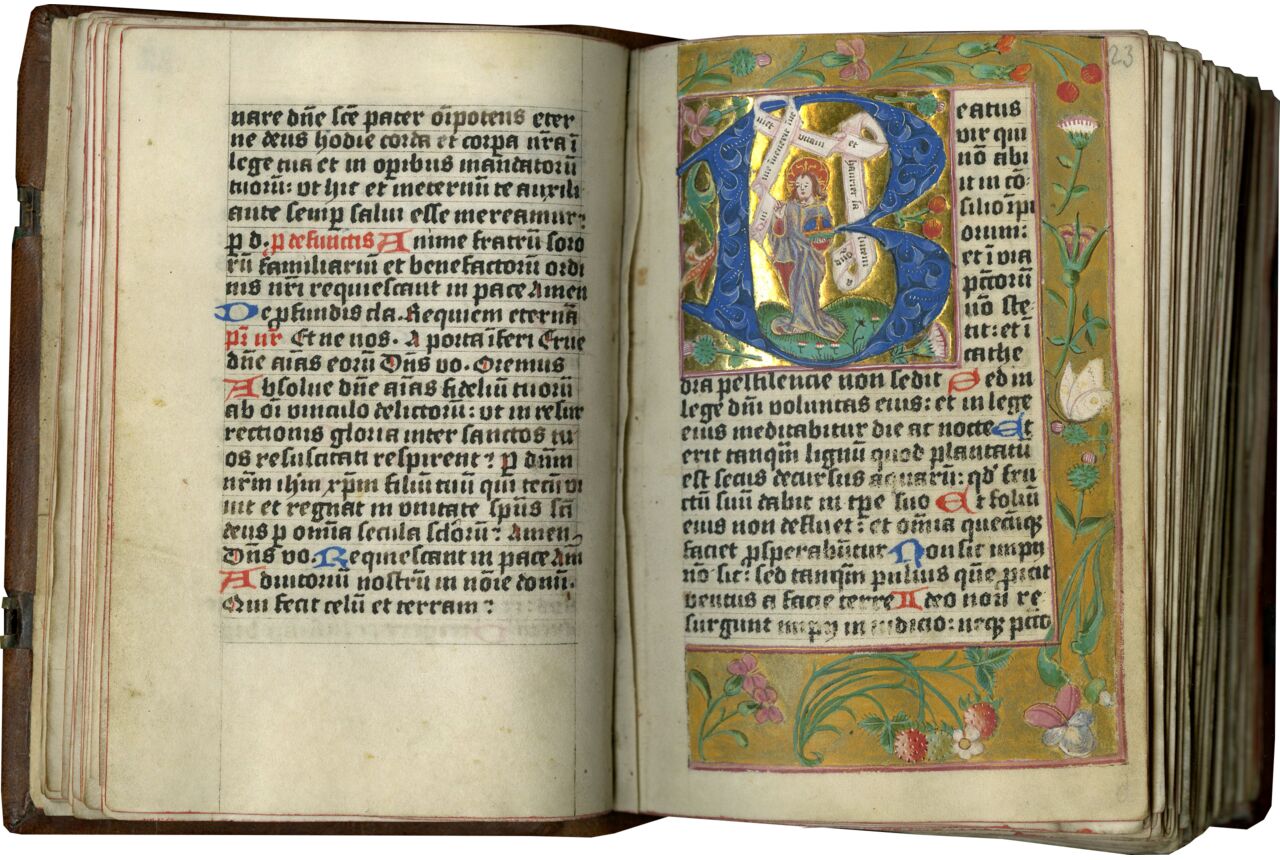 nare dñe sc̃e pater oi̅potens eter
ne deus hodie corda et corpa nr̃a ĩ
lege tua et in opibus mandatorũ
tuorũ: vt hic et ineternũ te auxili
ante semꝑ salui esse mereamur:
ꝑ d. ꝑ defunctis Anime fratrũ soro
rũ familiariũ et benefactorũ ordi
nis nr̃i requiescant in pace Amen
De ꝓfundis cla. Requiem eternã
Pr̃ nr̃ Et ne nos. A porta ĩferi Erue
dñe aĩas eorũ Dñs vo. Oremus
Absolue dñe aĩas fideliũ tuorũ
ab oĩ vinculo delictorũ: vt in resur
rectionis gloria inter sanctos tu
os resuscitati respirent: ꝑ dñm
nr̃m ihm̃ xp̃m filiũ tuũ qui tecũ vi
uit et regnat in vnitate sp̃us sc̃i
deus ꝑ omĩa secula sclorũ: Amen
Dñs vo. Requiescant in pace Am̃
Adiutoriũ nostrũ in noĩe domĩ.
Qui fecit celũ et terram:
23
qui me inuenerit inueniet vitam et hauriet salutem a dño
Beatus
vir qui
nõ abi
it in cõ
silio ĩpi
orum:
et ĩ via
pctõrũ
nõ ste
tit: et ĩ
cathe
dra pestilencie non sedit Sed in
lege dñi voluntas eius: et in lege
eius meditabitur die ac nocte Et
erit tanq̃m lignũ quod plantatũ
est secus decursus aquarũ: qd' fru
ctũ suũ dabit in tp̃e suo Et foliũ
eius non defluet: et om̃ia quecũqꝫ
faciet ꝓsperabũtur Non sic impij
nõ sic: sed tanq̃m puluis quẽ ꝓicit
ventus a facie terre Ideo non re
surgunt impij in iudicio: neqꝫ pctõ